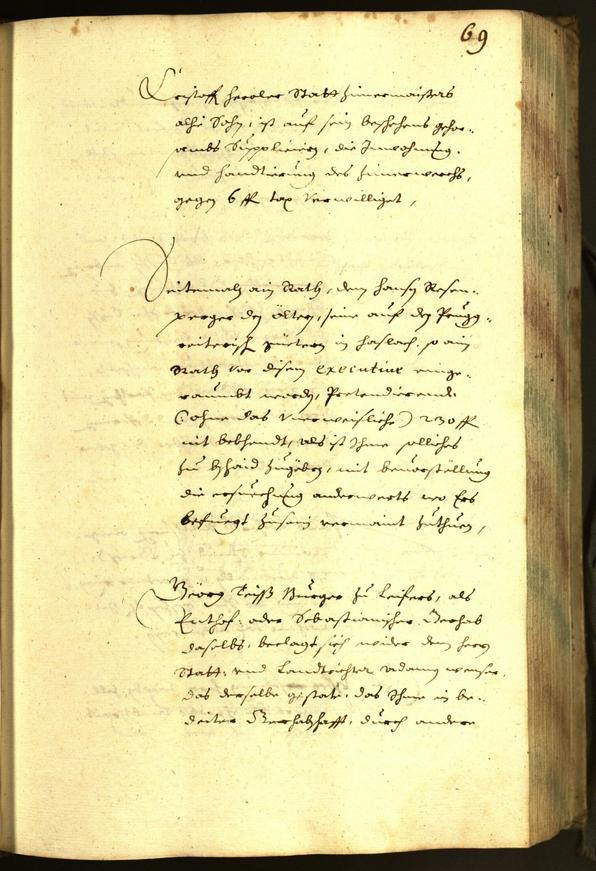 69
Cristoff Herrler Statt Zimermaisters
alhie Sohn, ist auf sein beschehens gehor-
sambs Suppliciern, die Inwohnung
und Handtierung des Zimerwerchs,
gegen 6 fl tax verwilliget,
Seitemalen ain Rath, dem Hansen Rosen-
perger den Öltern, seine auf den
güetern in Haslach, so ain
Rath vor disem executive einge-
raumbt worden, Pretendierende
(ohne das Unerweisliche) 230 fl
nit bekhendt, als ist Ihme solliches
zu bschaid zugeben, mit bevorstellung
die ersuechung anderwerts wo Ers
befuegt zusein vermaint zuthuen,
Georg Burger zu Leifers, als
oder Sebastianischer Gerhab
daselbs, beclagt sich wider den herrn
Statt- und Landtrichter
das derselbe gestate, das Ihme in be-
deiter Gerhabschafft, durch andere